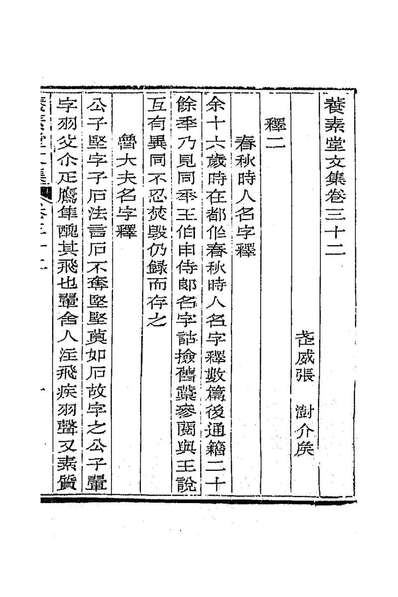 養素堂文集卷三十二
武威張 澍介矦
釋二
春秋時人名字釋
余十六歲時在都作春秋時人名字釋數篇後通籍二十
餘季乃見同季王伯申侍郞名字詁撿舊藁參閱與王說
互有異同不忍焚毀仍錄而存之
魯大夫名字釋
公子堅字子石法言石不奪堅堅莫如石故字之公子翬
字羽父尒疋鷹隼醜其飛也翬舍人注飛疾羽聲又素質
養素堂文集 卷三十二 一